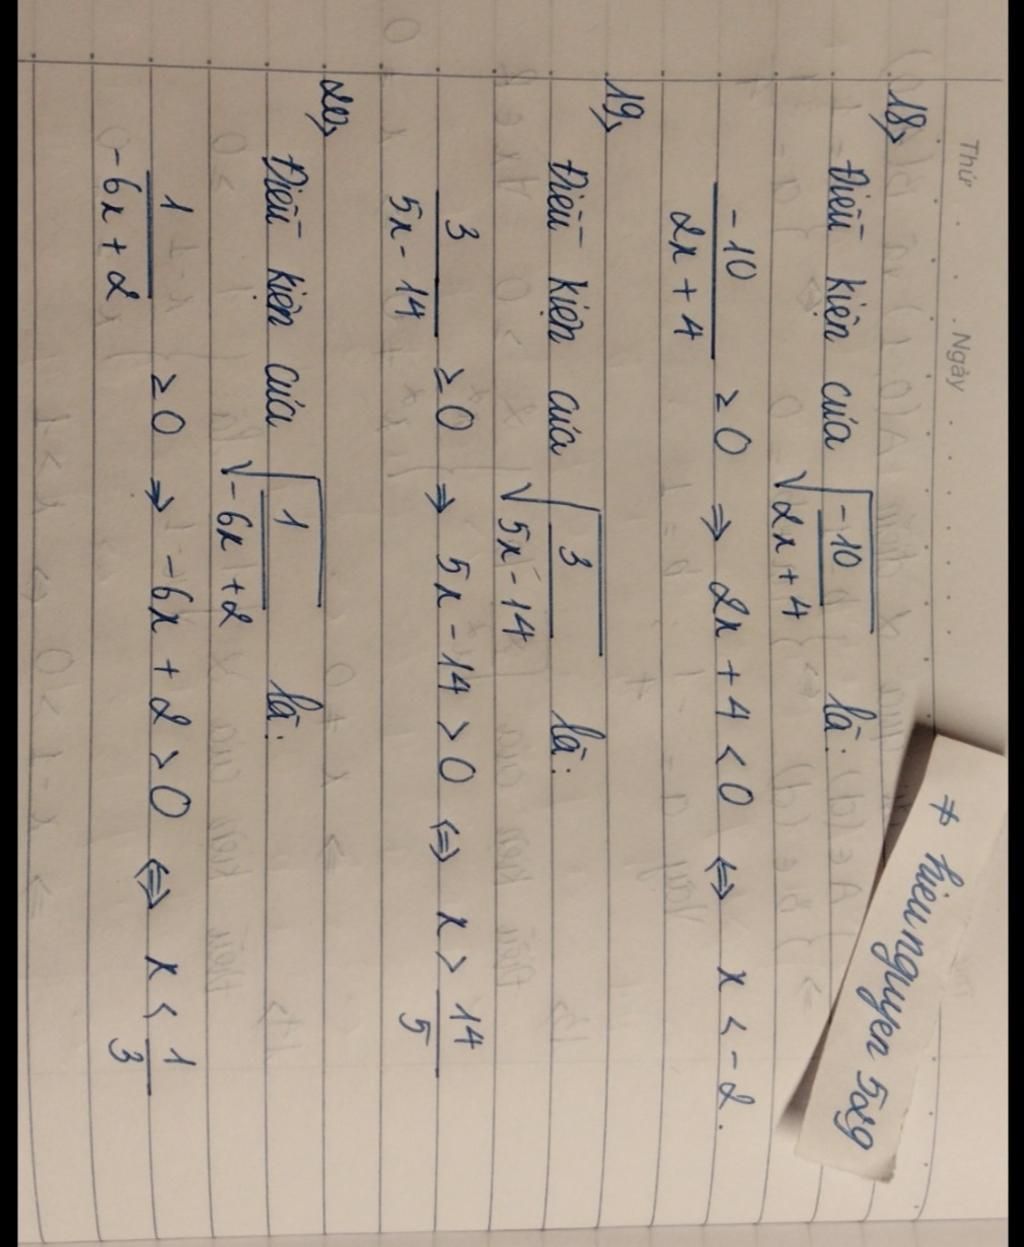 Thứ
Ngày
⇒ hieunguyen 5829
18,
Điều kiện của √(-10/(2x + 4)) là:
-10/(2x + 4) ≥ 0 ⇒ 2x + 4 < 0 ⇔ x < -2.
19,
Điều kiện của √(3/(5x - 14)) là:
3/(5x - 14) ≥ 0 ⇒ 5x - 14 > 0 ⇔ x > 14/5
20,
Điều kiện của √(1/(-6x + 2)) là:
1/(-6x + 2) ≥ 0 ⇒ -6x + 2 > 0 ⇔ x < 1/3